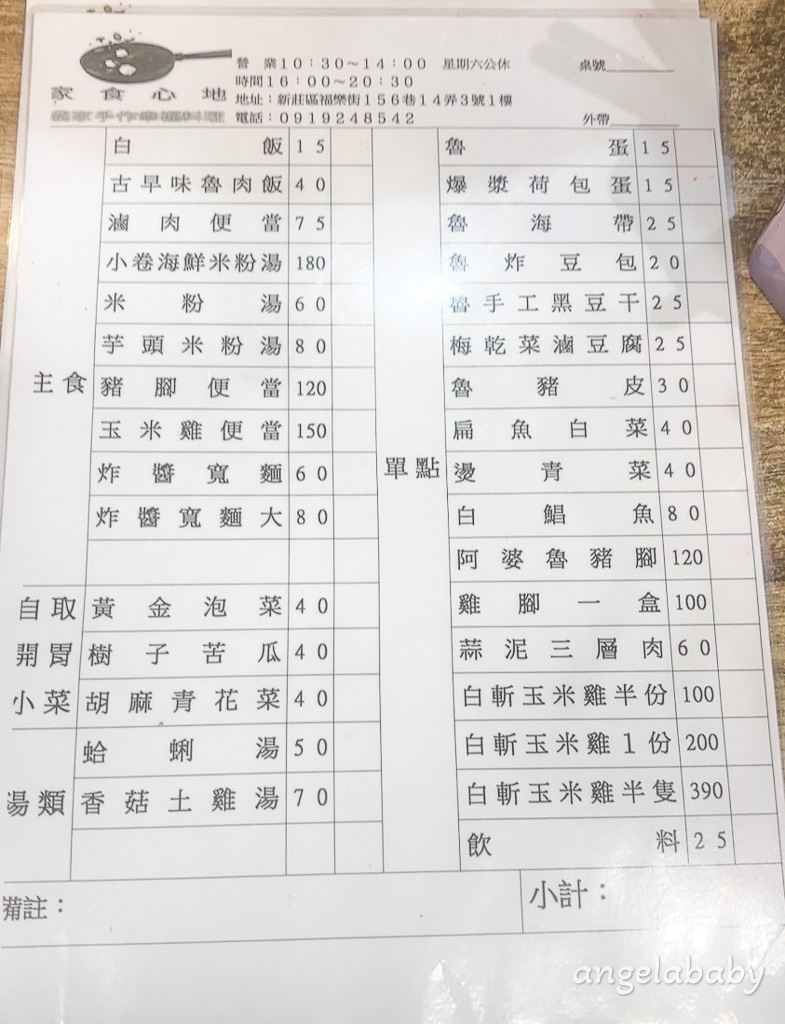 營業10:30~14:00 星期六公休 桌號
時間16:00~20:30
家食心地
地址:新莊區福樂街156巷14弄3號1樓
電話:0919248542 外帶
主食
白飯 15
古早味魯肉飯 40
滷肉便當 75
小卷海鮮米粉湯 180
米粉湯 60
芋頭米粉湯 80
豬腳便當 120
玉米雞便當 150
炸醬寬麵 60
炸醬寬麵大 80
自取開胃小菜
黃金泡菜 40
樹子苦瓜 40
胡麻青花菜 40
湯類
蛤蜊湯 50
香菇土雞湯 70
單點
魯蛋 15
爆漿荷包蛋 15
魯海帶 25
魯炸豆包 20
魯手工黑豆干 25
梅乾菜滷豆腐 25
魯豬皮 30
扁魚白菜 40
燙青菜 40
白鯧魚 80
阿婆魯豬腳 120
雞腳一盒 100
蒜泥三層肉 60
白斬玉米雞半份 100
白斬玉米雞1份 200
白斬玉米雞半隻 390
飲料 25
備註:
小計:
angelababy